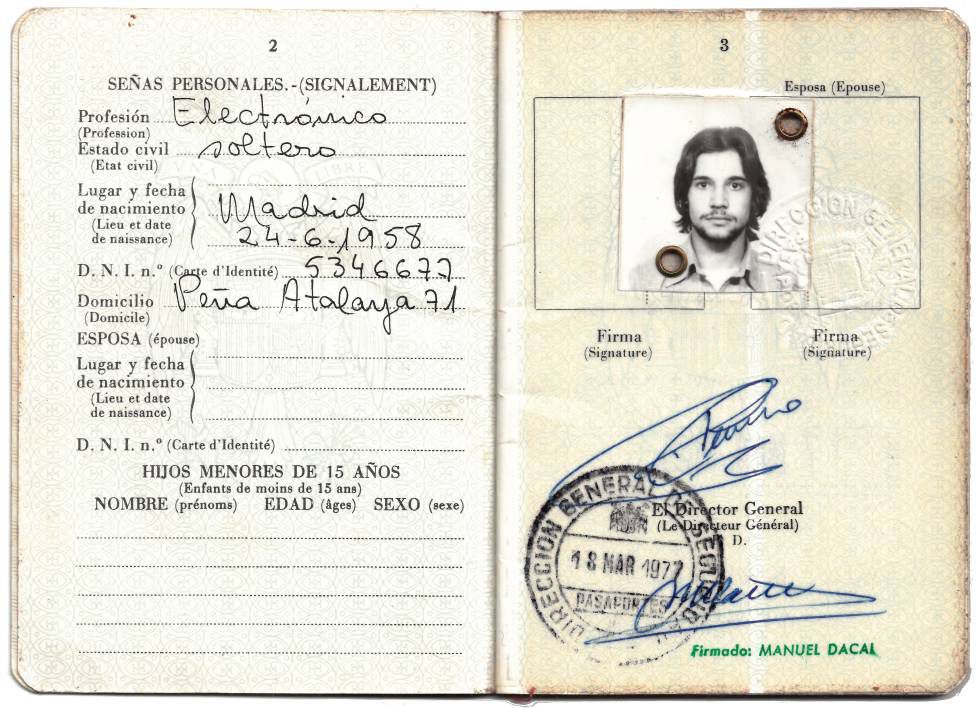 2
SEÑAS PERSONALES.-(SIGNALEMENT)
Profesión Electrónico
(Profession)
Estado civil soltero
(Etat civil)
Lugar y fecha
de nacimiento Madrid
(Lieu et date
de naissance) 24-6-1958
D. N. I. n.º (Carte d'Identité) 5346677
Domicilio Peña Atalaya 71
(Domicile)
ESPOSA (épouse)
Lugar y fecha
de nacimiento
(Lieu et date
de naissance)
D. N. I. n.º (Carte d'Identité)
HIJOS MENORES DE 15 AÑOS
(Enfants de moins de 15 ans)
NOMBRE (prénoms) EDAD (âges) SEXO (sexe)
3
Esposa (Epouse)
DIRECCION GENERAL
Firma
(Signature)
Firma
(Signature)
El Director General
(Le Directeur Général)
D.
DIRECCION GENERAL DE SEGURIDAD
18 MAR 1977
PASAPORTES
Firmado: MANUEL DACAL